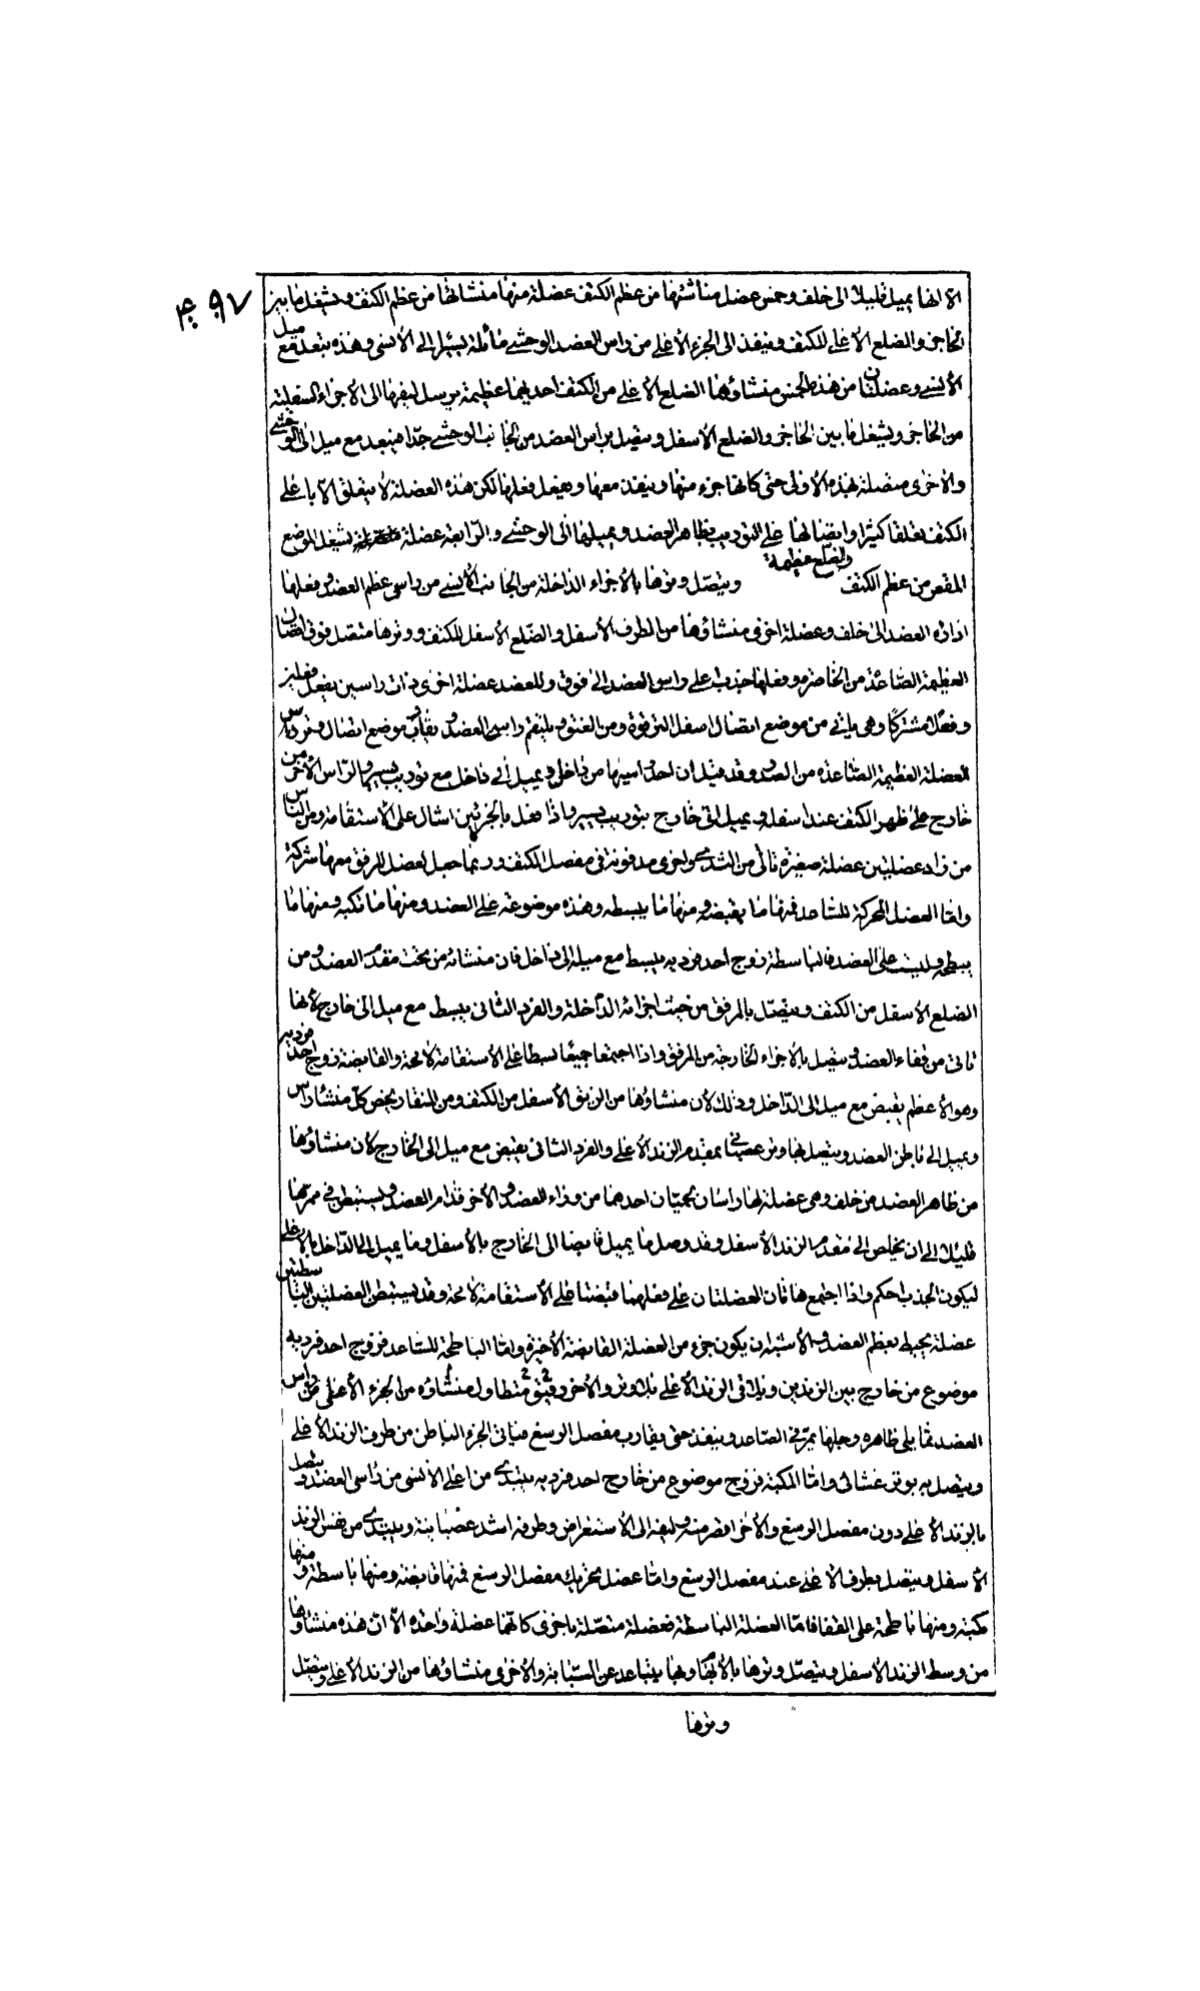 ٤٩٧
الا انها يميل قليلا الى خلف وخمس عضل منشائها من عظم الكتف عضلة منها منشائها من عظم الكتف ويشغل ما بين
الحاجز والضلع الاعلى للكتف وينفذ الى الجزء الأعلى من راس العضد الوحشي مائلة يسيرا الى الأنسى وهذه يبعد مع ميل
الأنسى وعضلتان من هذه الخمس منشاؤهما الضلع الأعلى من الكتف احديهما عظيمة يرسل ليفها الى الأجزاء السفلية
من الحاجز ويشغل ما بين الحاجز والضلع الاسفل ويتصل براس العضد من الجانب الوحشي جدا فيبعد مع ميل الى الوحشي
والأخرى متصلة بهذه الأولى حتى كانها جزء منها وينفذ معها ويفعل فعلها لكن هذه العضلة لا يتعلق الا باعلى
الكتف تعلقا كثيرا واتصالها على التوريب بظاهر العضد ويميلها الى الوحشي والرابعة عضلة يشغل الموضع
المقعر من عظم الكتف ويتصل وترها بالأجزاء الداخلة من الجانب الأنسى من راس عظم العضد وفعلها
ادارة العضد الى خلف وعضلة اخرى منشاؤها من الطرف الأسفل والضلع الأسفل للكتف ووترها متصل فوق اتصال
العظيمة الصاعدة من الخاصرة وفعلها جذب على راس العضد الى فوق وللعضد عضلة اخرى ذات راسين يفعل فعلين
وفعلا مشتركا وهى ياتى من موضع اتصال اسفل الترقوة ومن العنق ويلتقم راس العضد ويقارب موضع اتصال وتر
العضلة العظيمة الصاعدة من الصدر وقد قيل ان احد راسيها من داخل ويميل الى داخل مع توريب يسير والراس الأخر من
خارج على ظهر الكتف عند اسفله ويميل الى خارج بتوريب يسير واذا فعل بالجزئين اشال على الأستقامة ومن الناس
من زاد عضلتين عضلة صغيرة تأتى من الثدى واخرى مدفونة فى مفصل الكتف وربما جعل لعضل المرفق معها شركة
واما العضل المحركة للساعد فمنها ما يقبضه ومنها ما يبسطه وهذه موضوعة على العضد ومنها ما تكبه ومنها ما
يبطحه وليست على العضد فالباسطة زوج احد فرديه يبسط مع ميله الى داخل فان منشائه من تحت مقدم العضد ومن
الضلع الأسفل من الكتف ويتصل بالمرفق من حيث اجزائه الداخلة والفرد الثانى يبسط مع ميل الى خارج لأنها
تأتى من قفاء العضد ويتصل بالأجزاء الخارجة من المرفق واذا اجتمعا جميعا بسطا على الأستقامة لا محة والقابضة زوج احد فرديه
وهو الأعظم يقبض مع ميل الى الداخل وذلك لأن منشاؤها من الزيق الأسفل من الكتف ومن المنقار يخص كل منشا راس
ويميل الى باطن العضد ويتصل بها وتر بمقدم الزند الأعلى والفرد الثانى يقبض مع ميل الى الخارج لأن منشاؤها
من ظاهر العضد من خلف وهى عضلة لها راسان لحميان احدهما من وراء العضد والأخر قدام العضد ويستبطن فى ممرها
قليلا الى ان يخلص الى مقدم الزند الأسفل وقد وصل ما يميل قابضا الى الخارج بالأسفل وما يميل الى الداخل بالاعلى
ليكون الجذب احكم واذا اجتمع هاتان العضلتان على فعلهما قبضتا على الأستقامة لا محة وقد يستبطن العضلتين الباسطتين
عضلة يحيط بعظم العضد والأشبه ان يكون جزء من العضلة القابضة الأخيرة واما الباطحة للساعد فزوج احد فرديه
موضوع من خارج بين الزندين ويلاقى الزند الأعلى بلا وتر والأخر رقيق متطاول منشاؤه من الجزء الأعلى من راس
العضد مما يلى ظاهره وجلها يمر فى الصاعد وينفذ حتى يقارب مفصل الرسغ فياتى الجزء الباطن من طرف الزند الأعلى
ويتصل به بوتر غشائى واما المكبة فزوج موضوع من خارج احد فرديه يبتدى من اعلى الأنسى من راس العضد ويتصل
بالزند الأعلى دون مفصل الرسغ والأخر اقصر منه وليفه الى الأستعراض وطرفه اشد عصبانية ويبتدى من نفس الزند
الأسفل ويتصل بطرف الاعلى عند مفصل الرسغ واما عضل تحريك مفصل الرسغ فمنها قابضة ومنها باسطة ومنها
مكبة ومنها باطحة على القفا فاما العضلة الباسطة فعضلة متصلة باخرى كانهما عضلة واحدة الا ان هذه منشاؤها
من وسط الزند الاسفل ويتصل وترها بالأبهام وبها يتباعد عن السبابة والأخرى منشاؤها من الزند الأعلى ويتصل
وترها